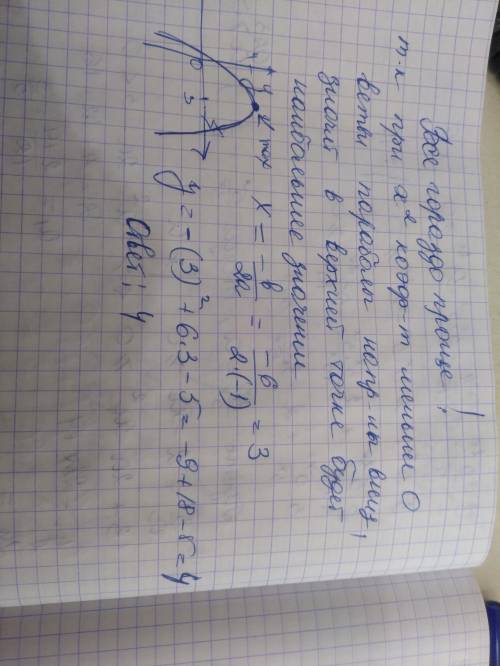 Все гораздо проще!
т.к при x² коэф-т меньше 0
ветви парабол напр-ны вниз,
значит в верхней точке будет
наибольшее значение
y
y max
x = -b/2a = -6/2·(-1) = 3
0
3
x
y = -(3)² + 6·3 - 5 = -9 + 18 - 5 = 4
Ответ: 4